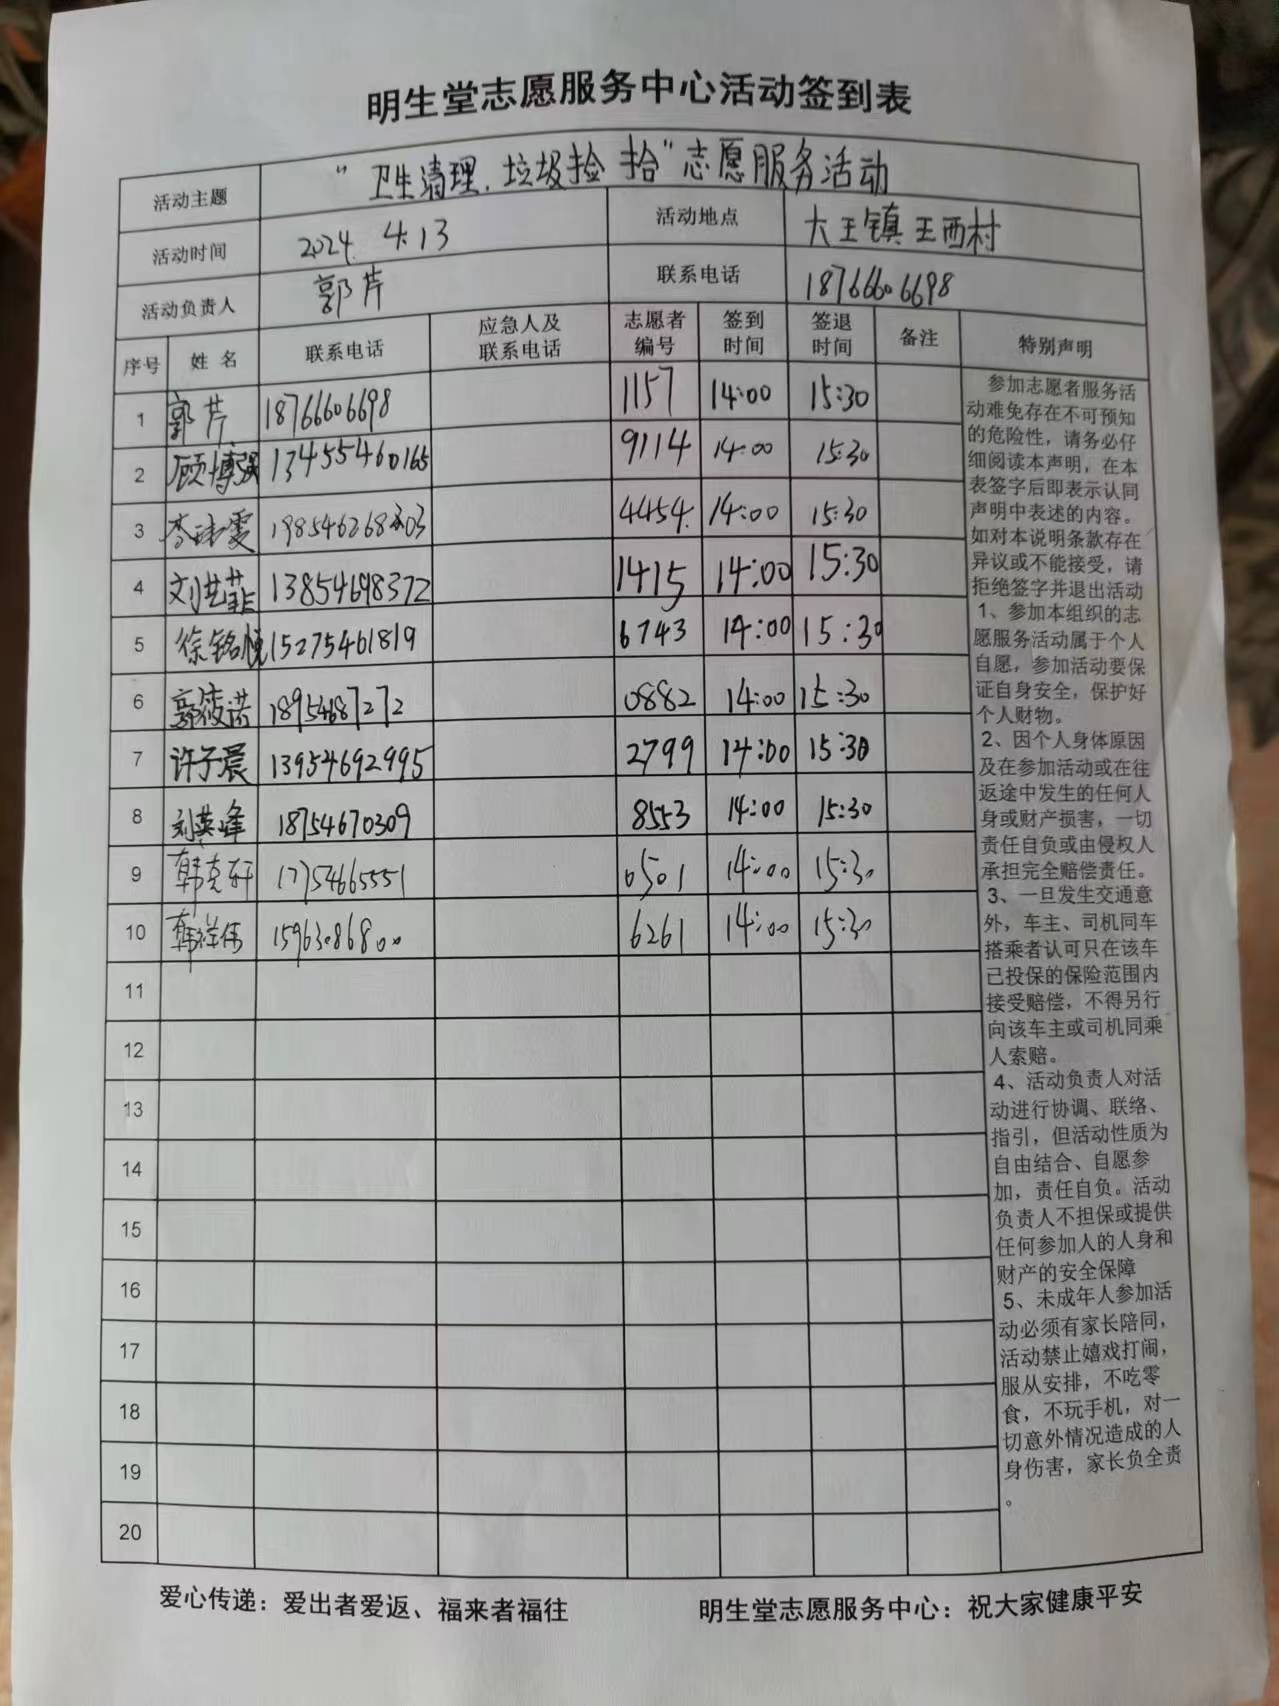 明生堂志愿服务中心活动签到表
活动主题 “卫生清理、垃圾捡拾”志愿服务活动
活动时间 2024. 4.13 活动地点 大王镇王西村
活动负责人 郭芹 联系电话 18766606698
序号 姓名 联系电话 应急人及联系电话 志愿者编号 签到时间 签退时间 备注 特别声明
1 郭芹 18766606698 1157 14:00 15:30
2 顾博强 13455460165 9114 14:00 15:30
3 4454 14:00 15:30
4 刘艺菲 13854698372 1415 14:00 15:30
5 徐铭悦 15275461819 6743 14:00 15:30
6 郭筱诺 18954687272 0882 14:00 15:30
7 许子晨 13954692995 2799 14:00 15:30
8 刘英峰 18754670309 8553 14:00 15:30
9 韩克轩 17754665551 0501 14:00 15:30
10 韩祥伟 15963086800 6261 14:00 15:30
11
12
13
14
15
16
17
18
19
20
参加志愿者服务活
动难免存在不可预知
的危险性，请务必仔
细阅读本声明，在本
表签字后即表示认同
声明中表述的内容。
如对本说明条款存在
异议或不能接受，请
拒绝签字并退出活动
1、参加本组织的志
愿服务活动属于个人
自愿，参加活动要保
证自身安全，保护好
个人财物。
2、因个人身体原因
及在参加活动或在往
返途中发生的任何人
身或财产损害，一切
责任自负或由侵权人
承担完全赔偿责任。
3、一旦发生交通意
外，车主、司机同车
搭乘者认可只在该车
已投保的保险范围内
接受赔偿，不得另行
向该车主或司机同乘
人索赔。
4、活动负责人对活
动进行协调、联络、
指引，但活动性质为
自由结合、自愿参
加，责任自负。活动
负责人不担保或提供
任何参加人的人身和
财产的安全保障
5、未成年人参加活
动必须有家长陪同，
活动禁止嬉戏打闹，
服从安排，不吃零
食，不玩手机，对一
切意外情况造成的人
身伤害，家长负全责
。
爱心传递：爱出者爱返、福来者福往 明生堂志愿服务中心：祝大家健康平安